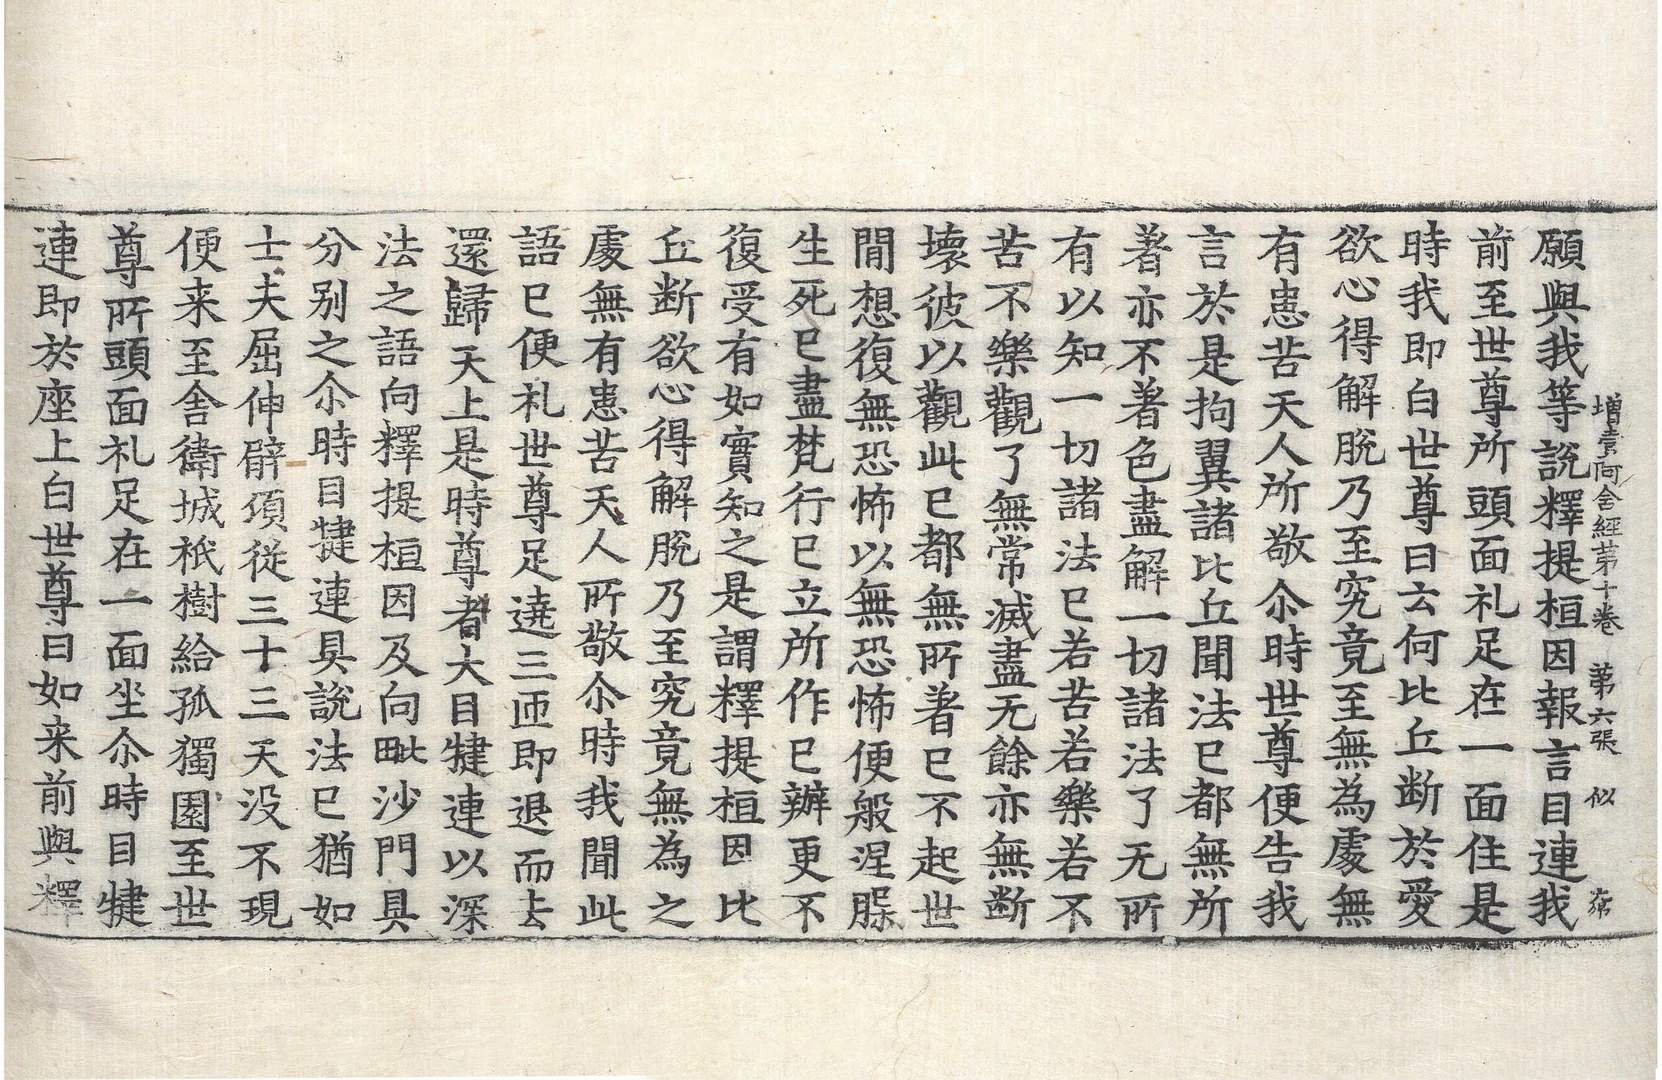 增壹阿含經第十卷 第六張 似
願與我等說釋提桓因報言目連我
前至世尊所頭面礼足在一面住是
時我即白世尊曰云何比丘断於愛
欲心得解脫乃至究竟至無為處無
有患苦天人所敬尒時世尊便告我
言於是拘翼諸比丘聞法已都無所
著亦不著色盡解一切諸法了无所
有以知一切諸法已若苦若樂若不
苦不樂觀了無常滅盡无餘亦無断
壞彼以觀此已都無所著已不起世
間想復無恐怖以無恐怖便般涅槃
生死已盡梵行已立所作已辦更不
復受有如實知之是謂釋提桓因比
丘断欲心得解脫乃至究竟無為之
處無有患苦天人所敬尒時我聞此
語已便礼世尊足遶三匝即退而去
還歸天上是時尊者大目犍連以深
法之語向釋提桓因及向毗沙門具
分別之尒時目犍連具說法已猶如
士夫屈伸臂頃從三十三天没不現
便来至舍衛城祇樹給孤獨園至世
尊所頭面礼足在一面坐尒時目犍
連即於座上白世尊曰如来前與釋